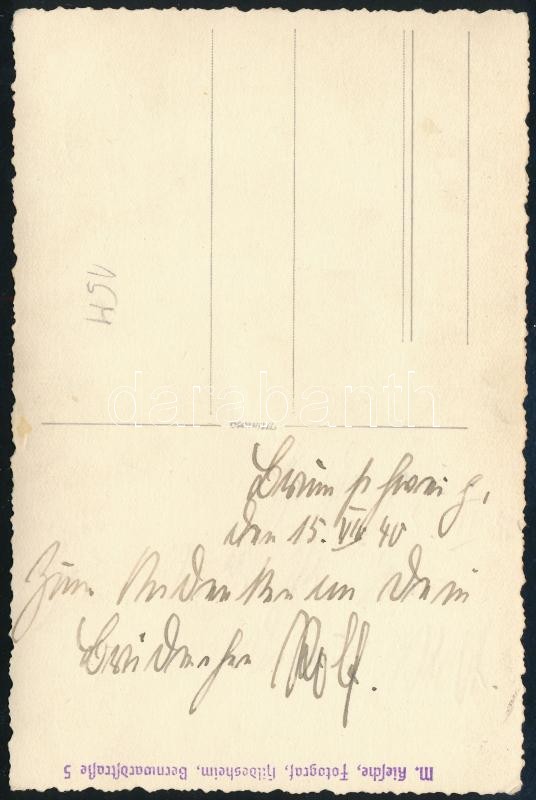 Braunschweig,
den 15. VII 40
Zum Andenken an dein
Brüderchen Rolf.
M. Kiesche, Fotograf, Hildesheim, Bernwardstraße 5
WSV
darabanth